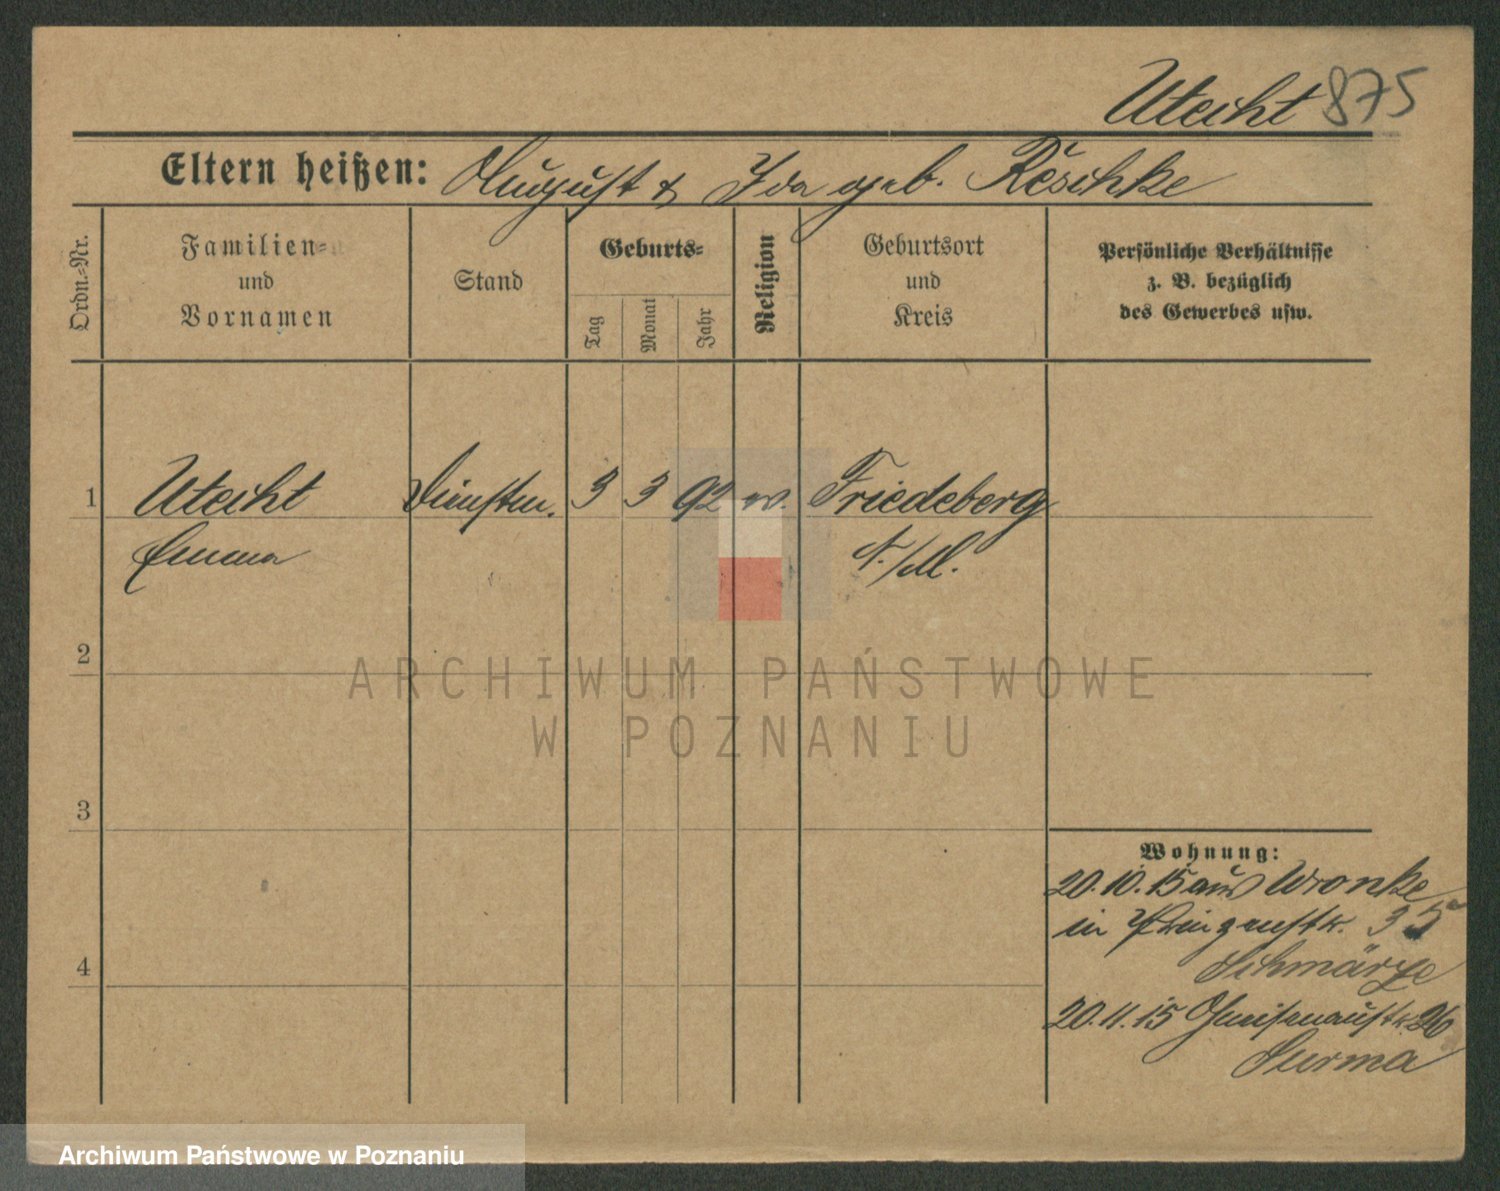 Utecht 875
Eltern heißen: August & Ida geb. Reschke
Ordn.-Nr.
Familien-
und
Vornamen
Stand
Geburts-
Tag
Monat
Jahr
Religion
Geburtsort
und
Kreis
Persönliche Verhältnisse
z. B. bezüglich
des Gewerbes usw.
1 Utecht Dienstm. 3 3 92 ev. Friedeberg
Emma N./M.
2
ARCHIWUM PAŃSTWOWE
W POZNANIU
3
Wohnung:
20.10.15 aus Wronke
in Prinzenstr. 35
Schmärze
4
20.11.15 Gneisenaustr. 26
Surma
Archiwum Państwowe w Poznaniu